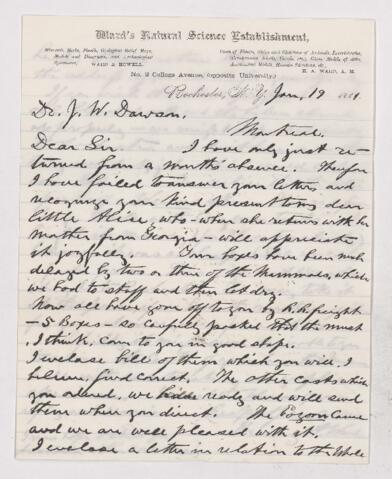 Ward's Natural Science Establishment,
Minerals, Rocks, Fossils, Geological Relief Maps,
Models and Diagrams, and Archæological
Specimens.
WARD & HOWELL.
Casts of Fossils, Skins and Skeletons of Animals, Invertebrates,
H. A. WARD, A. M.
No. 2 College Avenue, (opposite University.)
Rochester, N. Y. Jan, 19
Dr. J. W. Dawson,
Montreal.
Dear Sir. I have only just re-
turned from a month's absence. Therefore
I have failed to answer your letters, and
recognize your kind present to my dear
little Alice, who - when she returns with her
mother from Georgia - will appreciate
it joyfully. Your boxes have been much
delayed by two or three of the Mammals, which
we had to stuff and then let dry.
Now all have gone off to you by R.R. freight
- 5 Boxes - so carefully packed that they must
, I think, come to you in good shape.
I enclose bill of them which you will, I
believe, find correct. The other casts which
you ordered, we hold ready and will send
them when you direct. The Eozoon came
and we are well pleased with it.
I enclose a letter in relation to the Whale